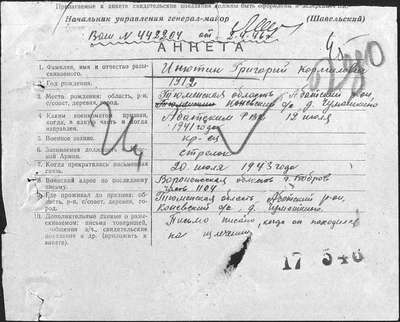 Прилагаемые к анкете свидетельские показания должны быть оформлены и заверены
Начальник управления генерал-майор (Шавельский)
Ваш № 448204 от
АНКЕТА
1. Фамилия, имя и отчество разыскиваемого. Инютин Григорий
2. Год рождения. 1912
3. Место рождения: область, р-н, с/совет, деревня, город. Тюменская область Абатский р-он, Коневский
4. Каким военкоматом призван, когда, в какую часть и когда направлен. Абатским РВК 12 июля
1941 года
5. Военное звание. кр-ец
стрелок
7. Когда прекратилась письменная связь. 20 июля 1943 года
8. Воинский адрес по последнему письму. Воронежская область г. Бобров
часть 1104
9. Где проживал до призыва: область, р-н, с/совет, деревня, город. Тюменская область Абатский р-он,
Коневский
10. Дополнительные данные о разыскиваемом: письма товарищей, свидетельские показания и др. (приложить к анкете). Письмо писано, когда он находился
на излечении
17 546